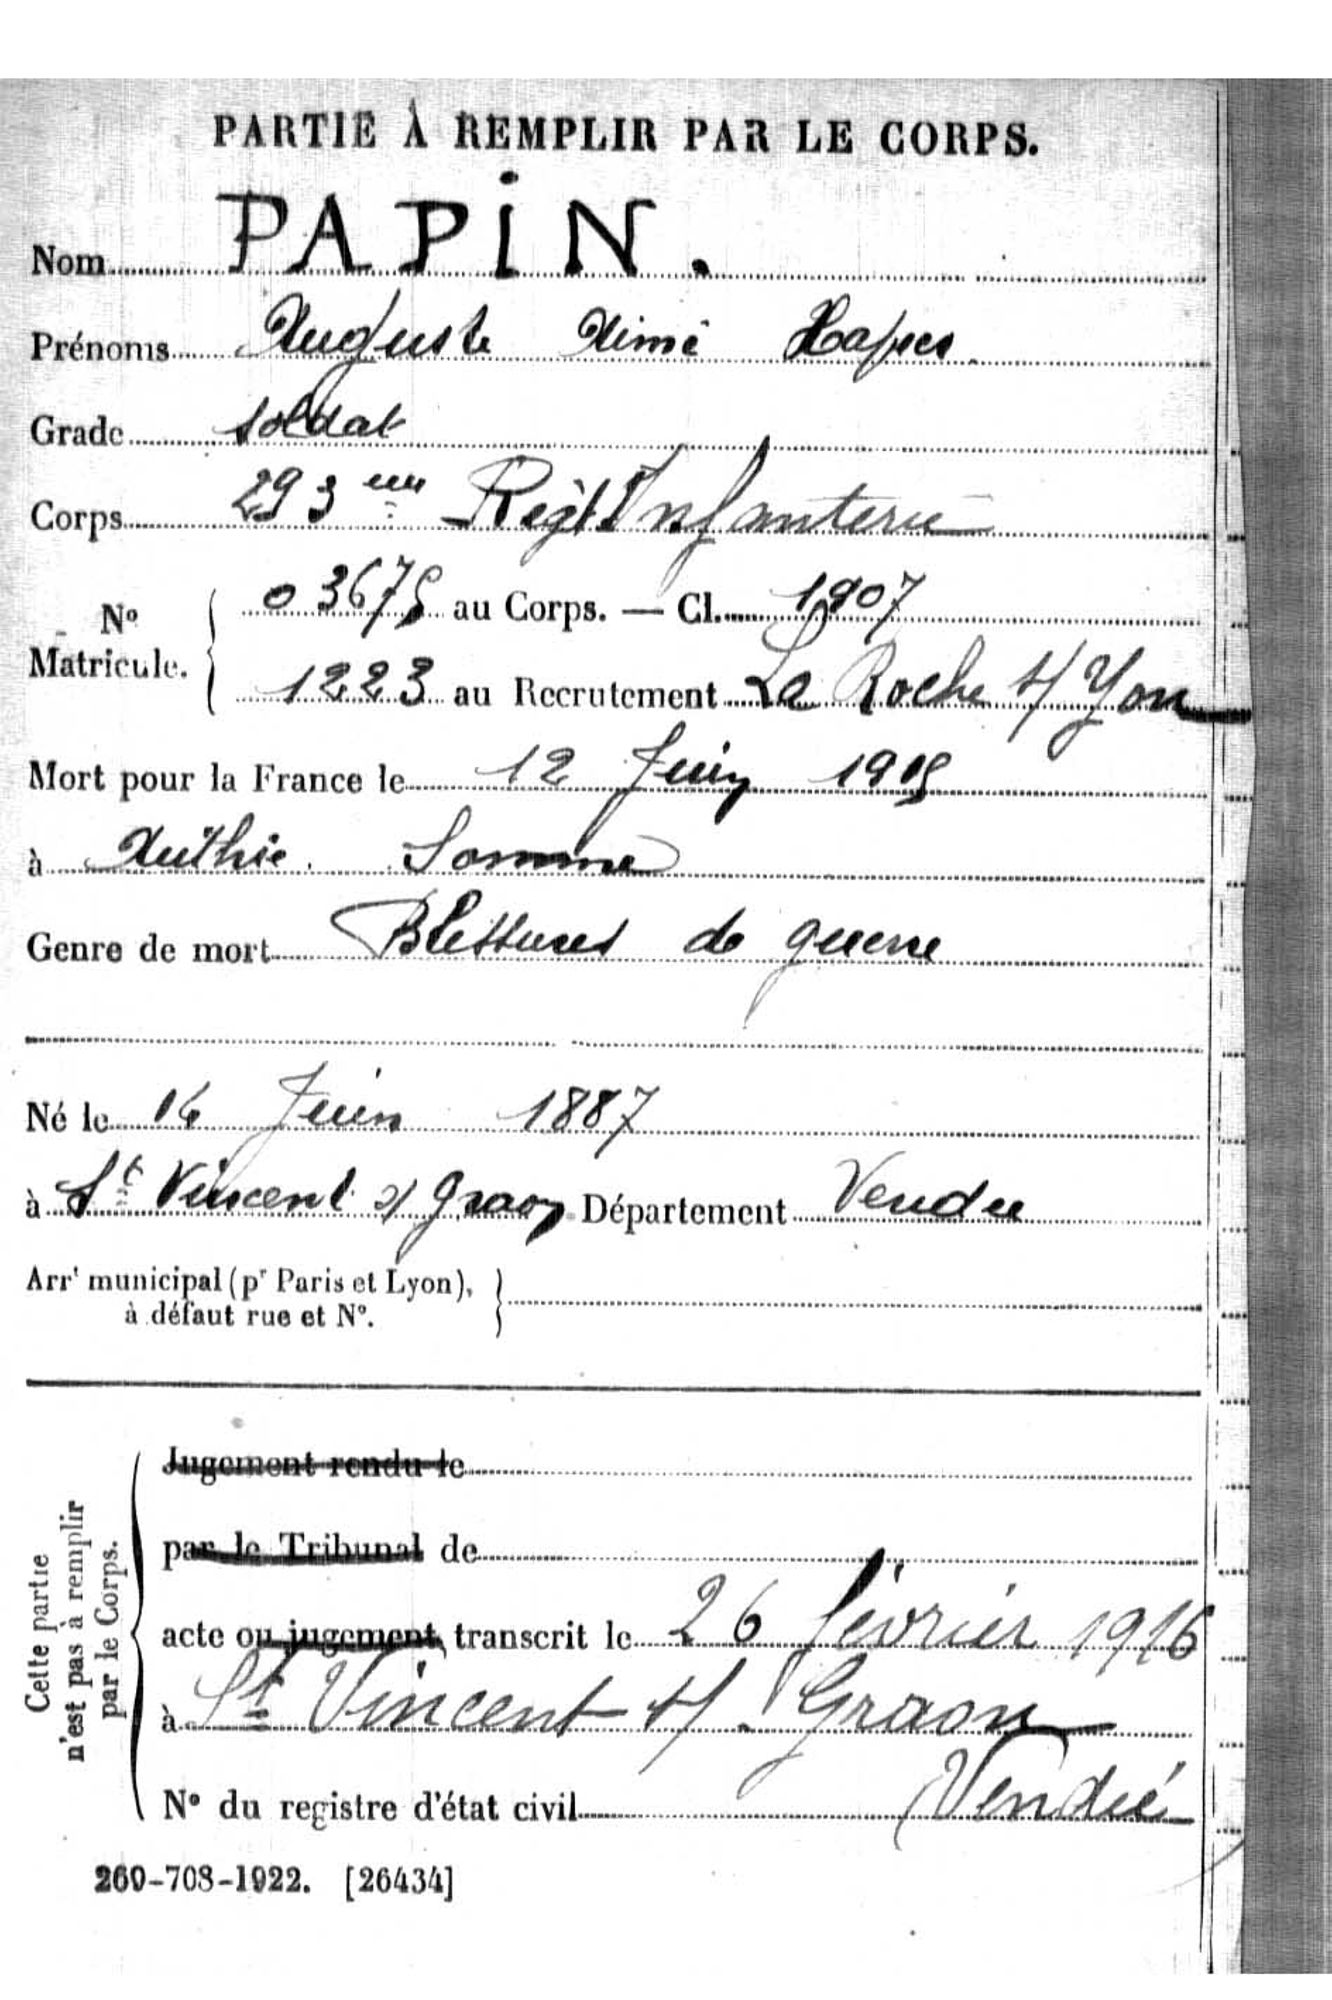 PARTIE À REMPLIR PAR LE CORPS.
Nom PAPIN.
Prénoms Auguste Aimé
Grade Soldat
Corps 293eme Régt Infanterie
No Matricule. 03675 au Corps. — Cl. 1907
1223 au Recrutement La Roche s/ Yon
Mort pour la France le 12 Juin 1915
à Authie. Somme
Genre de mort Blessures de guerre
Né le 14 Juin 1887
à St Vincent s/ Graon Département Vendée
Arrt municipal (pr Paris et Lyon),
à défaut rue et No.
Cette partie
n'est pas à remplir
par le Corps.
Jugement rendu le
par le Tribunal de
acte ou jugement transcrit le 26 février 1916
à St Vincent s/ Graon
No du registre d'état civil Vendée
269-708-1922. [26434]